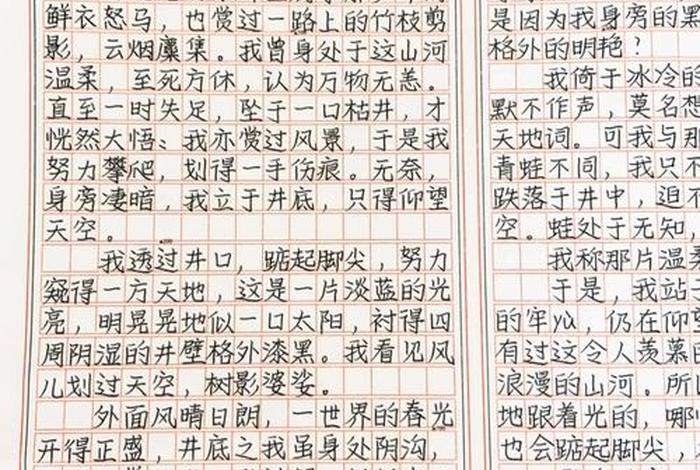 鲜衣怒马，也赏过一路上的竹枝剪
影，云烟麇集。我曾身处于这山河
温柔，至死方休，认为万物无恙。
直至一时失足，坠于一口枯井，才
恍然大悟：我亦赏过风景，于是我
努力攀爬，划得一手伤痕。无奈，
身旁凄暗，我立于井底，只得仰望
天空。
我透过井口，踮起脚尖，努力
窥得一方天地，这是一片淡蓝的光
亮，明晃晃地似一口太阳，衬得四
周阴湿的井壁格外漆黑。我看见风
儿划过天空，树影婆娑。
外面风晴日朗，一世界的春光
开得正盛，井底之我虽身处阴沟，
是因为我身旁的黑
格外的明艳？
我倚于冰冷的
默不作声，莫名想
天地词。可我与那
青蛙不同，我只不
跌落于井中，迫不
空。蛙处于无知，
我称那片温柔
于是，我站
的牢
，仍在仰望
有过这令人羡慕的
浪漫的山河。所以
地跟着光的，哪
也会踮起脚尖，